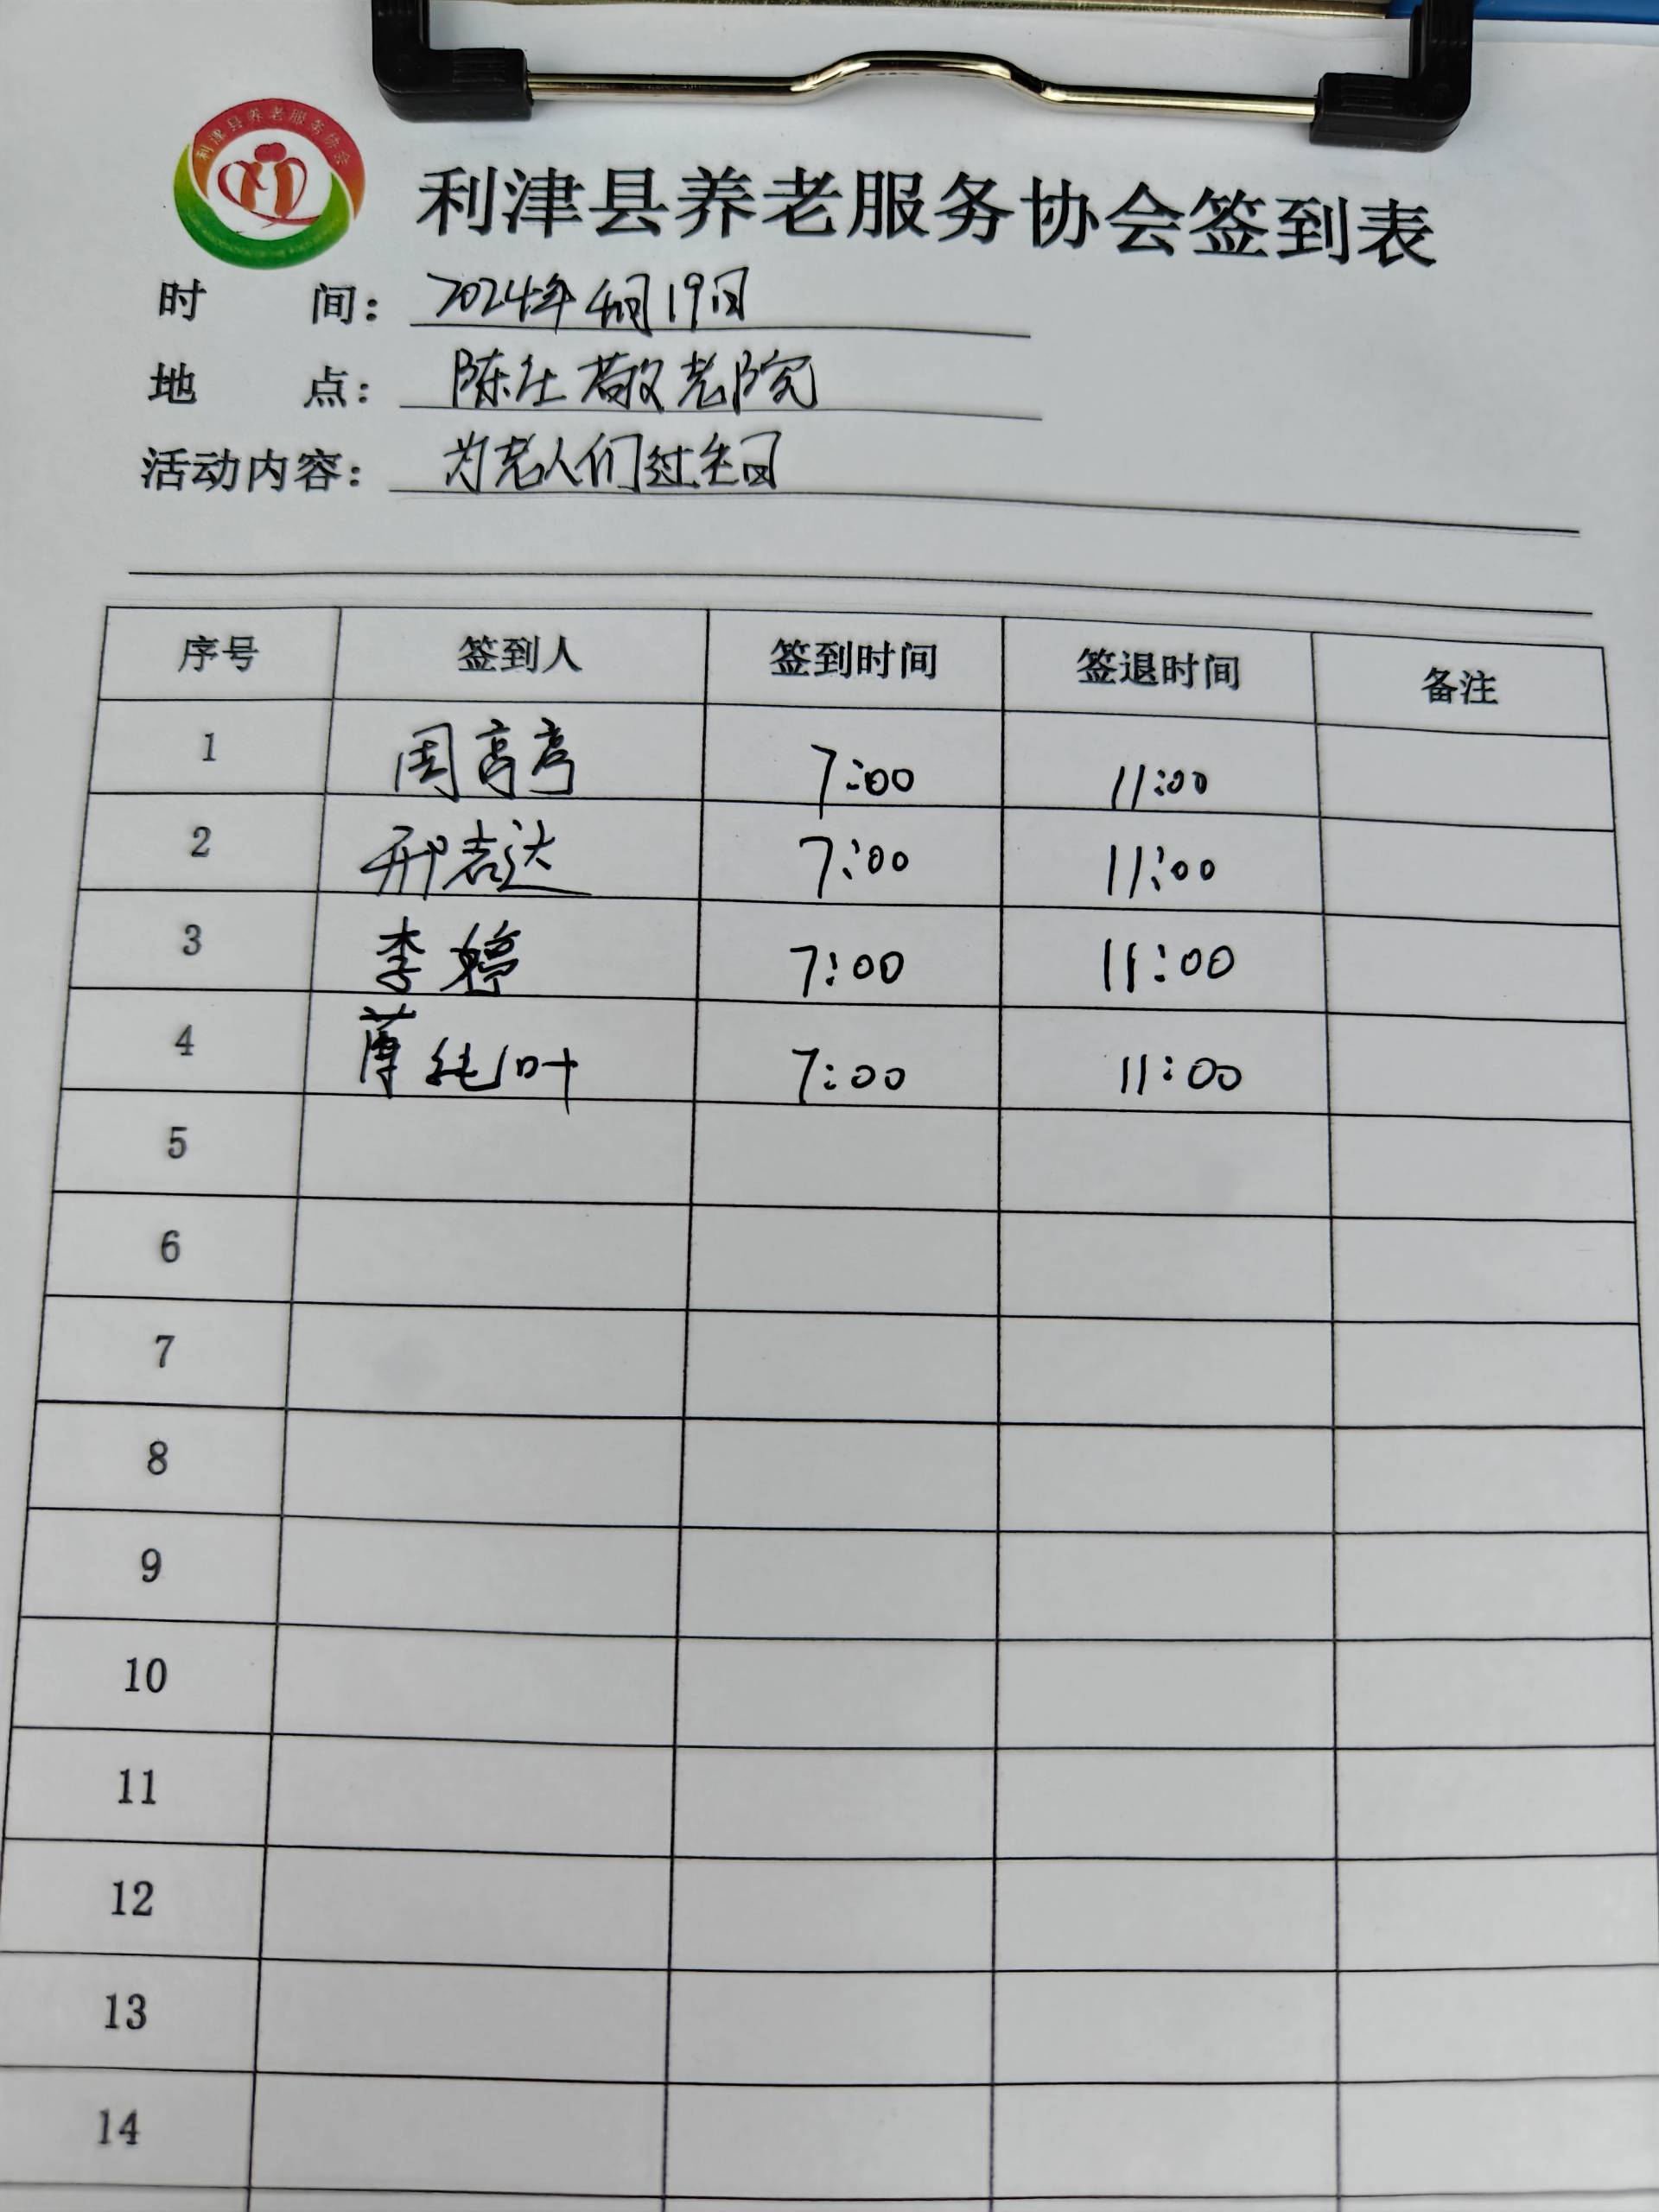 利津县养老服务协会
利津县养老服务协会签到表
时 间: 2024年4月19日
地 点: 陈庄敬老院
活动内容: 为老人们过生日
序号 签到人 签到时间 签退时间 备注
1 周 7:00 11:00
2 邢志达 7:00 11:00
3 李婷 7:00 11:00
4 薄纯叶 7:00 11:00
5
6
7
8
9
10
11
12
13
14